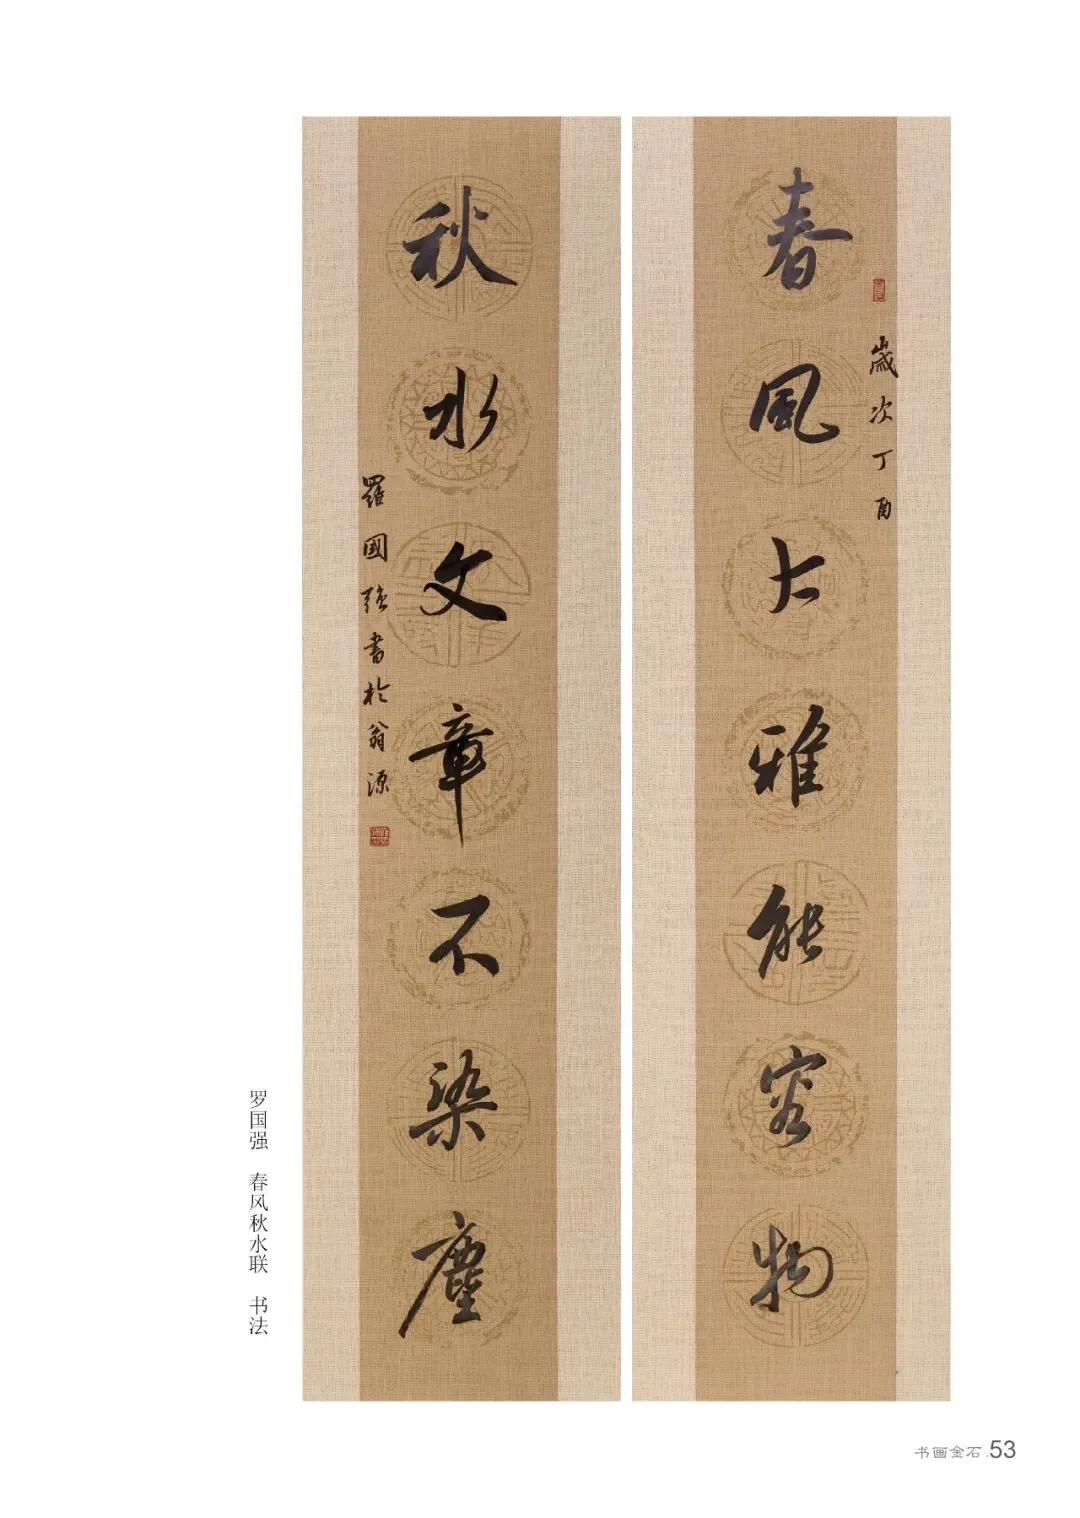 春風大雅能容物
歲次丁酉
秋水文章不染塵
羅國强書於翁源
罗国强 春风秋水联 书法
书画金石.53